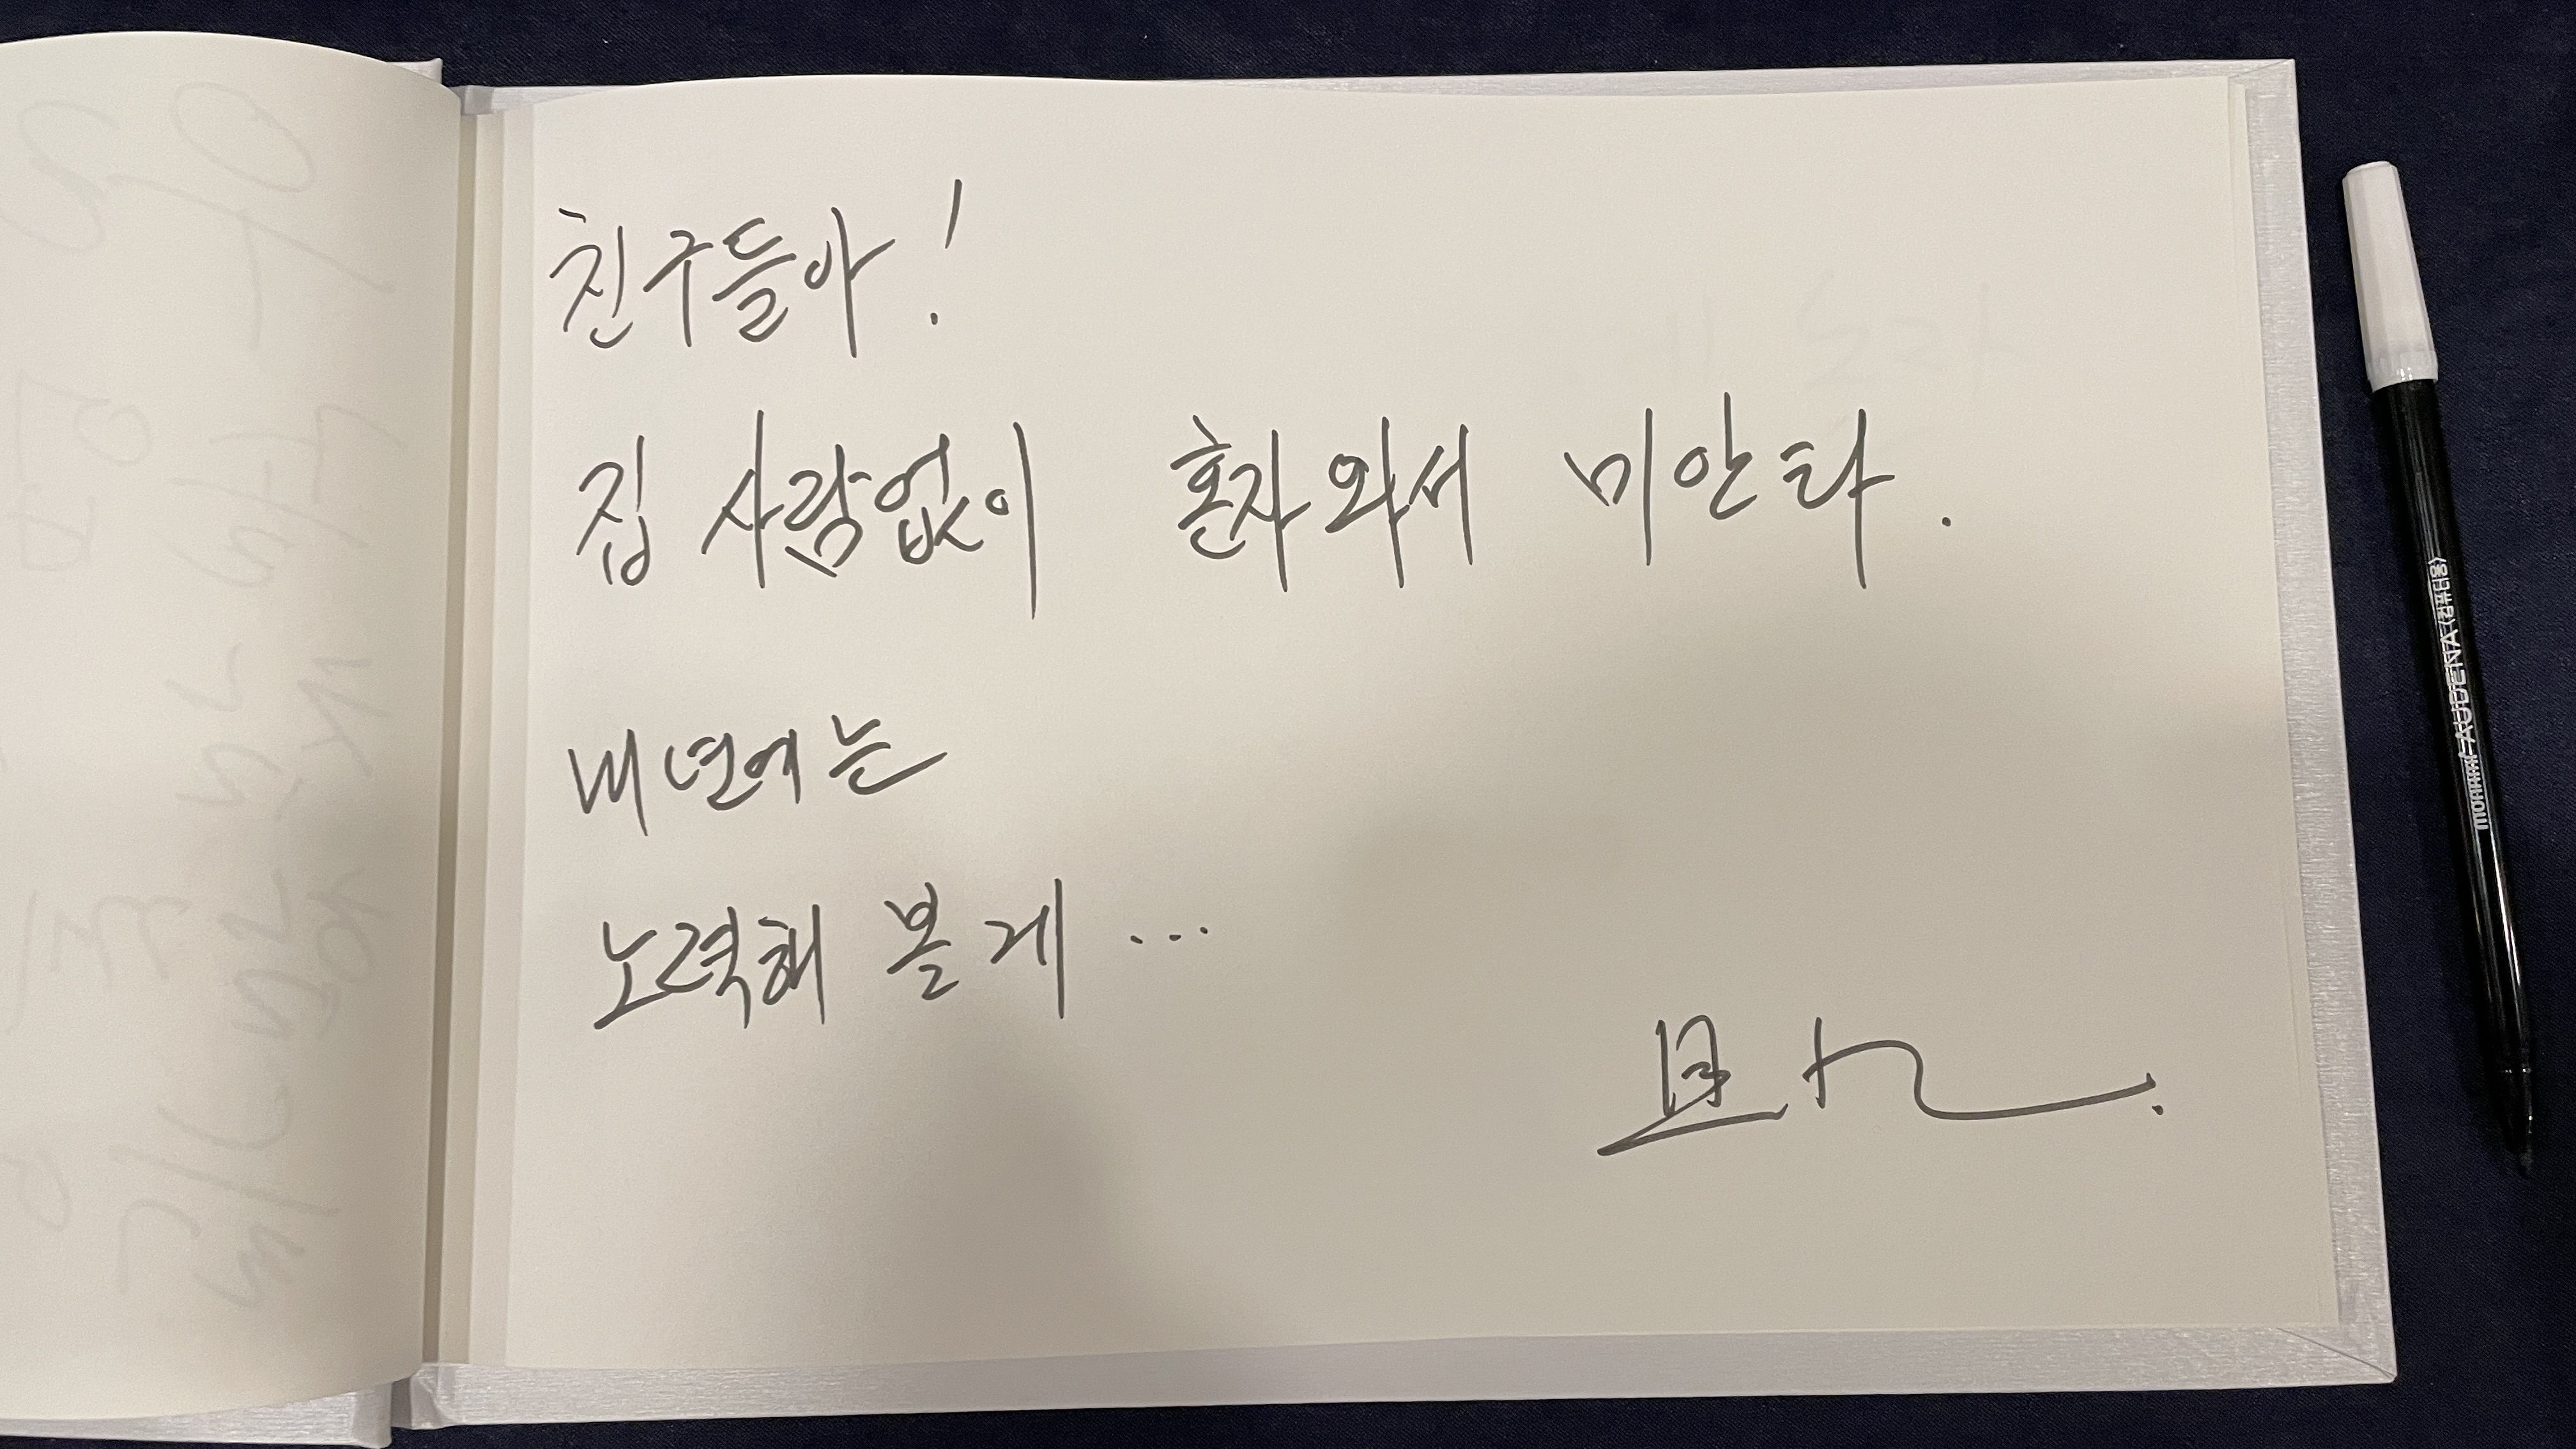 친구들아!
집 사람없이 혼자와서 미안타.
내년에는
노력해 볼게...
monami AUDENA (컴퓨터용)